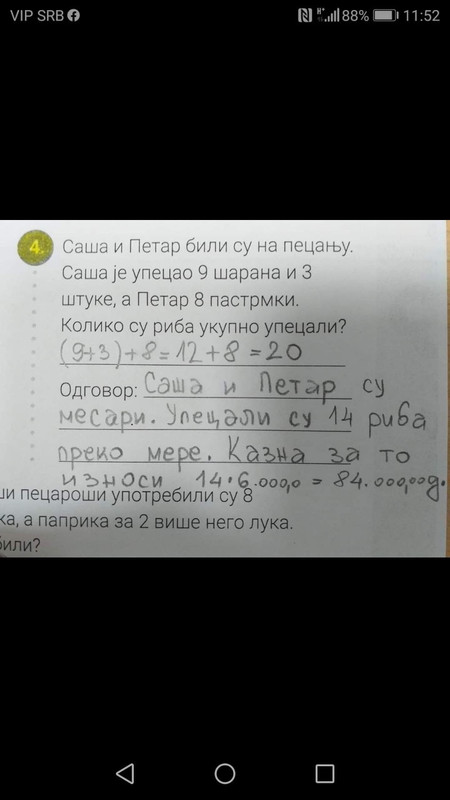 VIP SRB
88%
11:52
4.
Саша и Петар били су на пецању.
Саша је упецао 9 шарана и 3
штуке, а Петар 8 пастрмки.
Колико су риба укупно упецали?
(9+3)+8=12+8=20
Одговор: Саша и Петар су
месари. Упецали су 14 риба
преко мере. Казна за то
износи 14·6.000,0 = 84.000,00д.
ши пецароши употребили су 8
ка, а паприка за 2 више него лука.
били?